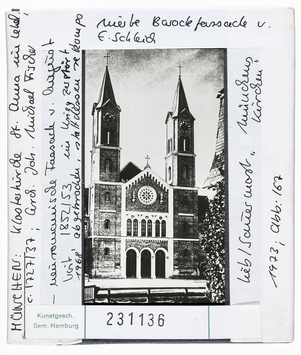 nicht Barockfassade v.
E. Schleich
MÜNCHEN: Klosterkirche St. Anna im Lehel
c. 1727/37; Arch. Joh. Michael Fischer
- neuromanische Fassade v. August
Voit 1852/53 im Krieg zerstört
1968 abgebrochen, stattdessen rekompo
Lieb/Sauermost, Münchens
Kirchen
1973, Abb. 167
Kunstgesch.
Sem. Hamburg
231136